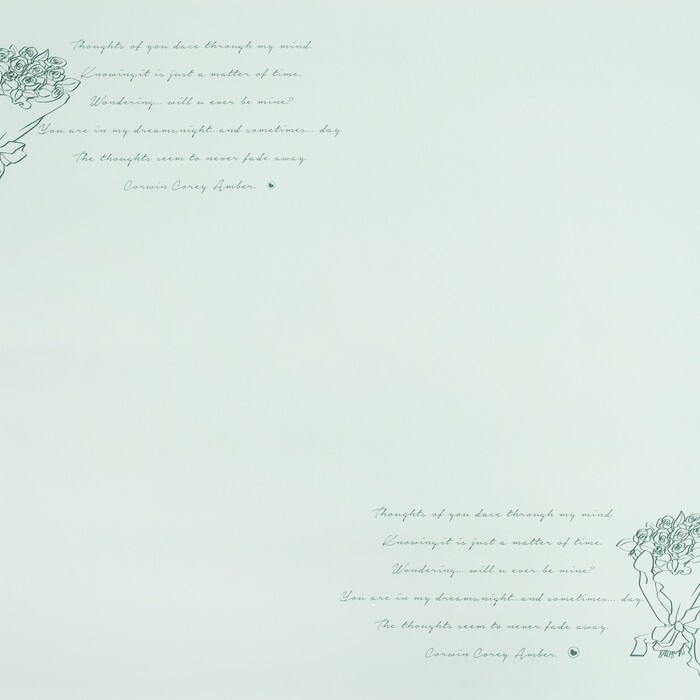 Thoughts of you dace through my mind.
Knowingit is just a matter of time.
Wondering... will u ever be mine?
You are in my dreams,night...and sometimes... day.
The thoughts seem to never fade away.
Corwin Corey Amber.
Thoughts of you dace through my mind.
Knowingit is just a matter of time.
Wondering... will u ever be mine?
You are in my dreams,night...and sometimes... day.
The thoughts seem to never fade away.
Corwin Corey Amber.